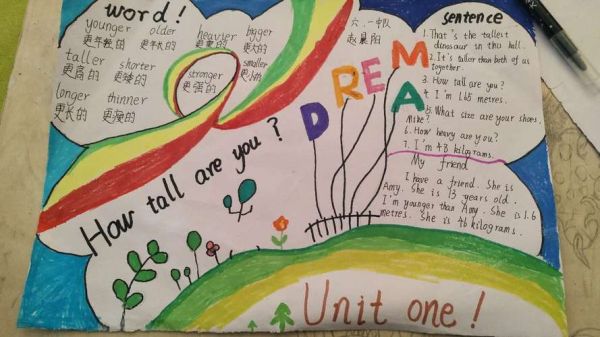 word!
younger older heavier bigger
更年轻的 更年长的 更重的 更大的
taller shorter stronger smaller
更高的 更矮的 更强的 更小的
longer thinner
更长的 更瘦的
六.一中队
赵晨阳
DREAM
How tall are you?
sentence
1. That's the tallest
dinosaur in this hall.
2. It's taller than both of us
together.
3. How tall are you?
4. I'm 1.65 metres.
5. What size are your shoes,
Mike?
6. How heavy are you?
7. I'm 48 kilograms.
My friend
I have a friend. She is
Amy. She is 13 years old.
I'm younger than Amy. She is 1.6
metres. She is 46 kilograms.
Unit one!